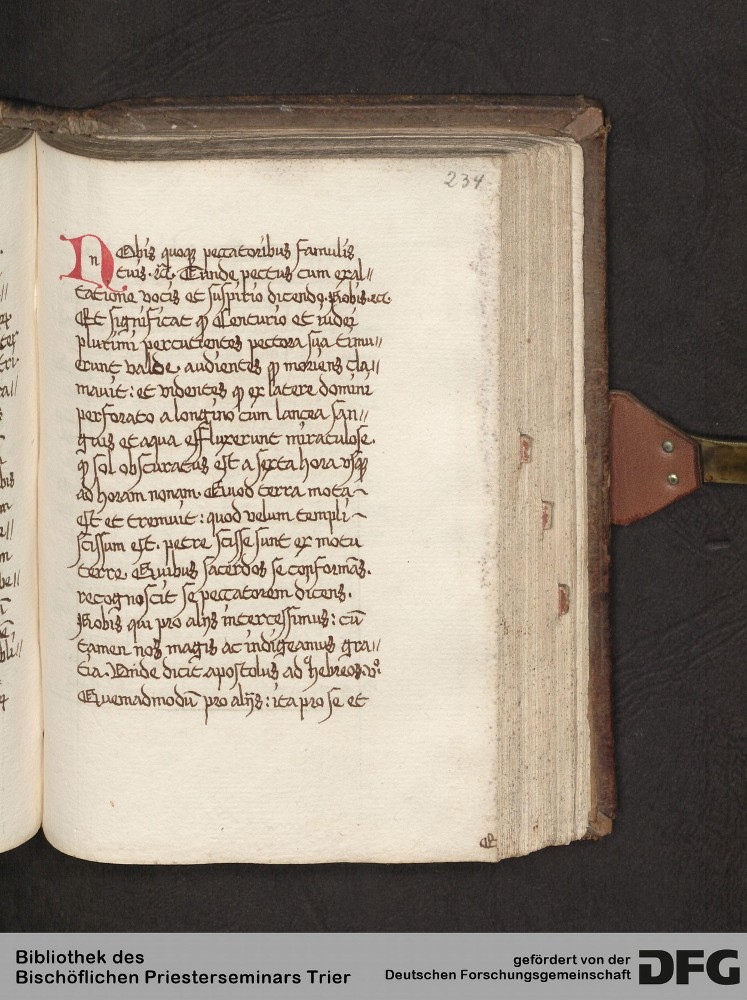 234
NObis quoqꝫ peccatoribus famulis
tuis. ꝛc̃. Tunde pectus cum exal//
tatione vocis et suspirio dicendo. Nobis. ꝛc.
Et significat ꝙ Centurio et iudei
plurimi percutientes pectora sua timu//
erunt valde. audientes ꝙ moriens cla//
mauit: et videntes ꝙ ex latere domini
perforato a longino cum lancea san//
guis et aqua effluxerunt miraculose.
ꝙ sol obscuratus est a sexta hora vsqꝫ
ad horam nonam. Quod terra mota
est et tremuit: quod velum templi
scissum est. petre scisse sunt ex motu
terre. Quibus sacerdos se conformãs.
recognoscit se peccatorem dicens.
Nobis qui pro alijs intercessimus: cũ
tamen nos magis ac indigeamus gra//
tia. Vnde dicit apostolus ad hebreos. vᵒ.
Quemadmodũ pro alijs: ita pro se et
Bibliothek des
Bischöflichen Priesterseminars Trier
gefördert von der
Deutschen Forschungsgemeinschaft
DFG